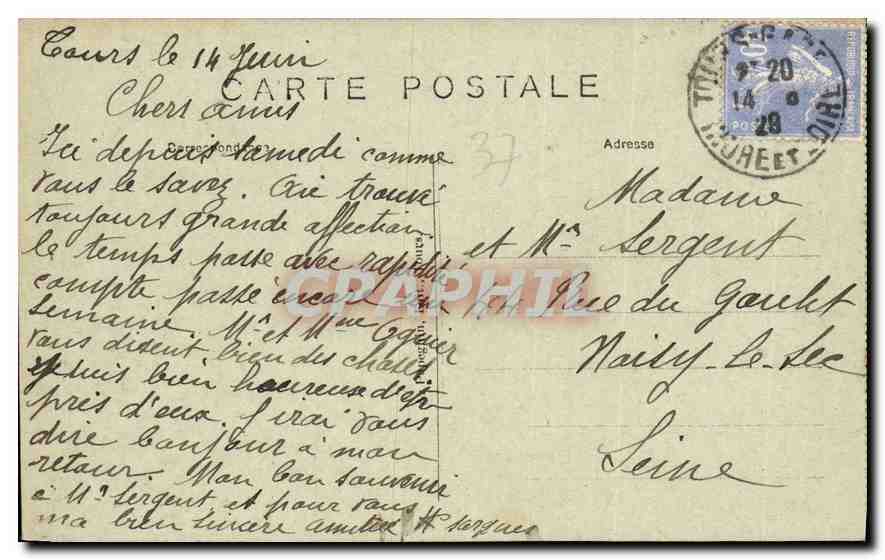 Tours le 14 Juin
CARTE POSTALE
Chers amis
Correspondance
Ici depuis samedi comme
vous le savez. Ai trouvé
toujours grande affection
le temps passe avec rapidité
compte passé encore
semaine Mr et Mme Ogier
vous disent bien des choses
Je suis bien heureuse d'être
près d'eux. J'irai vous
dire bonjour à mon
retour Mon bon souvenir
à Mr Sergent et pour vous
ma bien sincère amitié
37
Adresse
Madame
et Mr Sergent
44 Rue du Goulet
Noisy-le-Sec
Seine
TOURS-GARE
20
14 6
29
INDRE ET LOIRE
POSTES
CARAPHIL